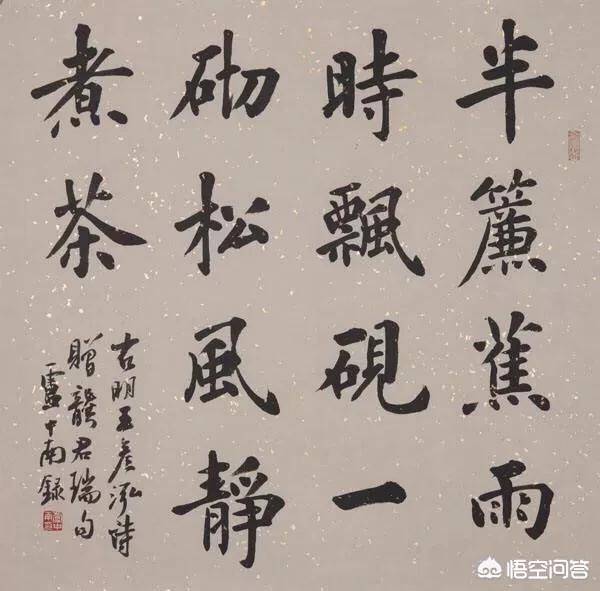 半簾蕉雨
時飄硯一
砌松風靜
煮茶
右明王彥泓詩
贈龔君瑞句
盧中南錄
悟空问答